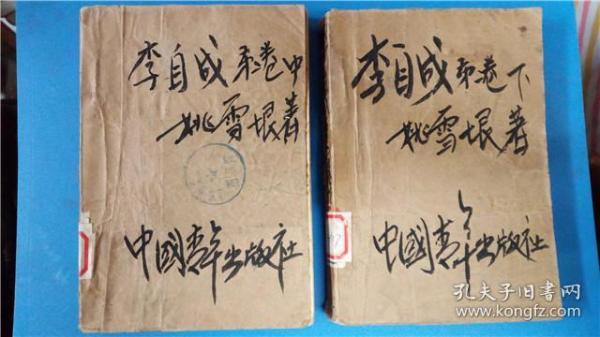 李自成 第二卷 中
姚雪垠著
中國青年出版社
李自成 第二卷 下
姚雪垠著
中國青年出版社
孔夫子旧书网
www.kongfz.com